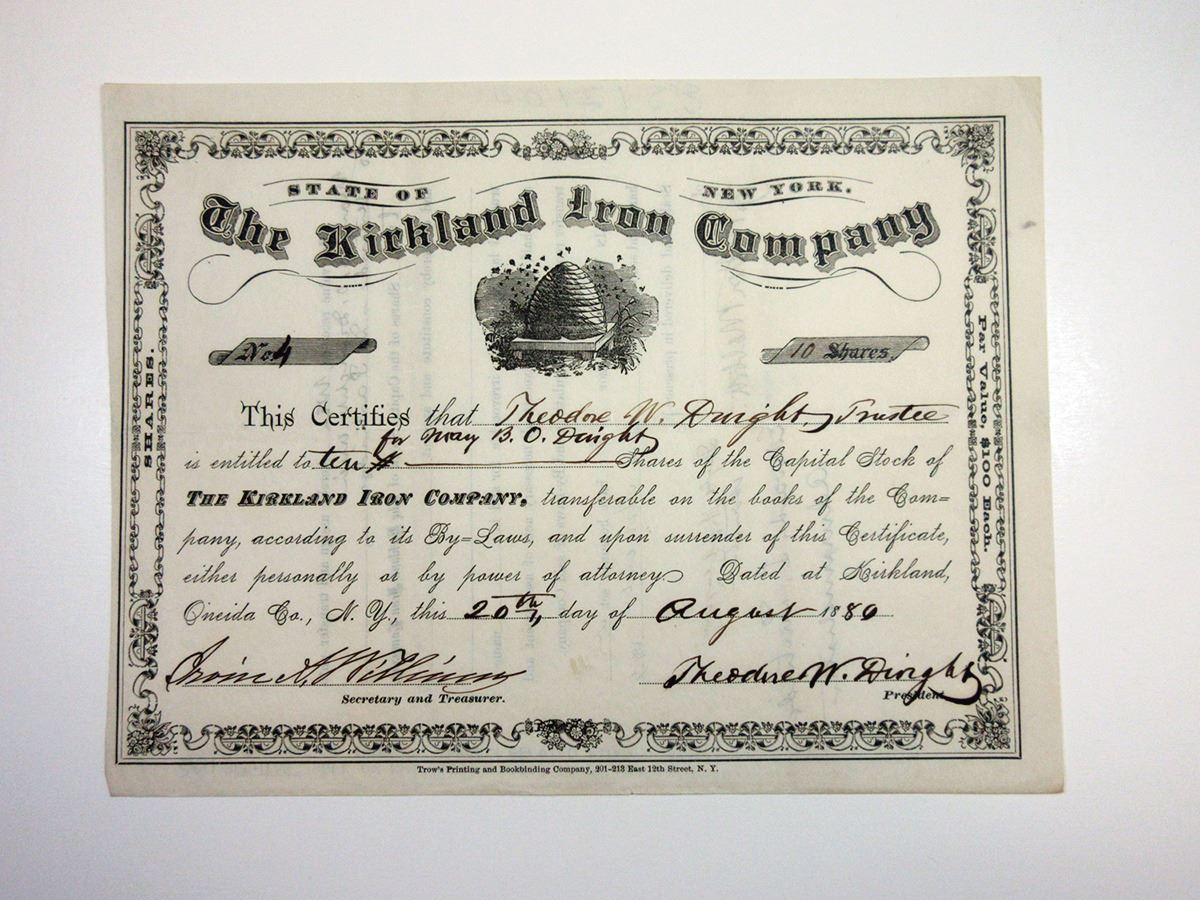 STATE OF NEW YORK.
The Kirkland Iron Company
No. 4
10 Shares
SHARES.
Par Value, $100 Each.
This Certifies that Theodore W. Dwight, Trustee
for May B. O. Dwight
is entitled to ten Shares of the Capital Stock of
THE KIRKLAND IRON COMPANY, transferable on the books of the Com=
pany, according to its By=Laws, and upon surrender of this Certificate,
either personally or by power of attorney Dated at Kirkland,
Oneida Co., N. Y., this 20th day of August 1880
Secretary and Treasurer.
Theodore W. Dwight
President
Trow's Printing and Bookbinding Company, 201-213 East 12th Street, N. Y.